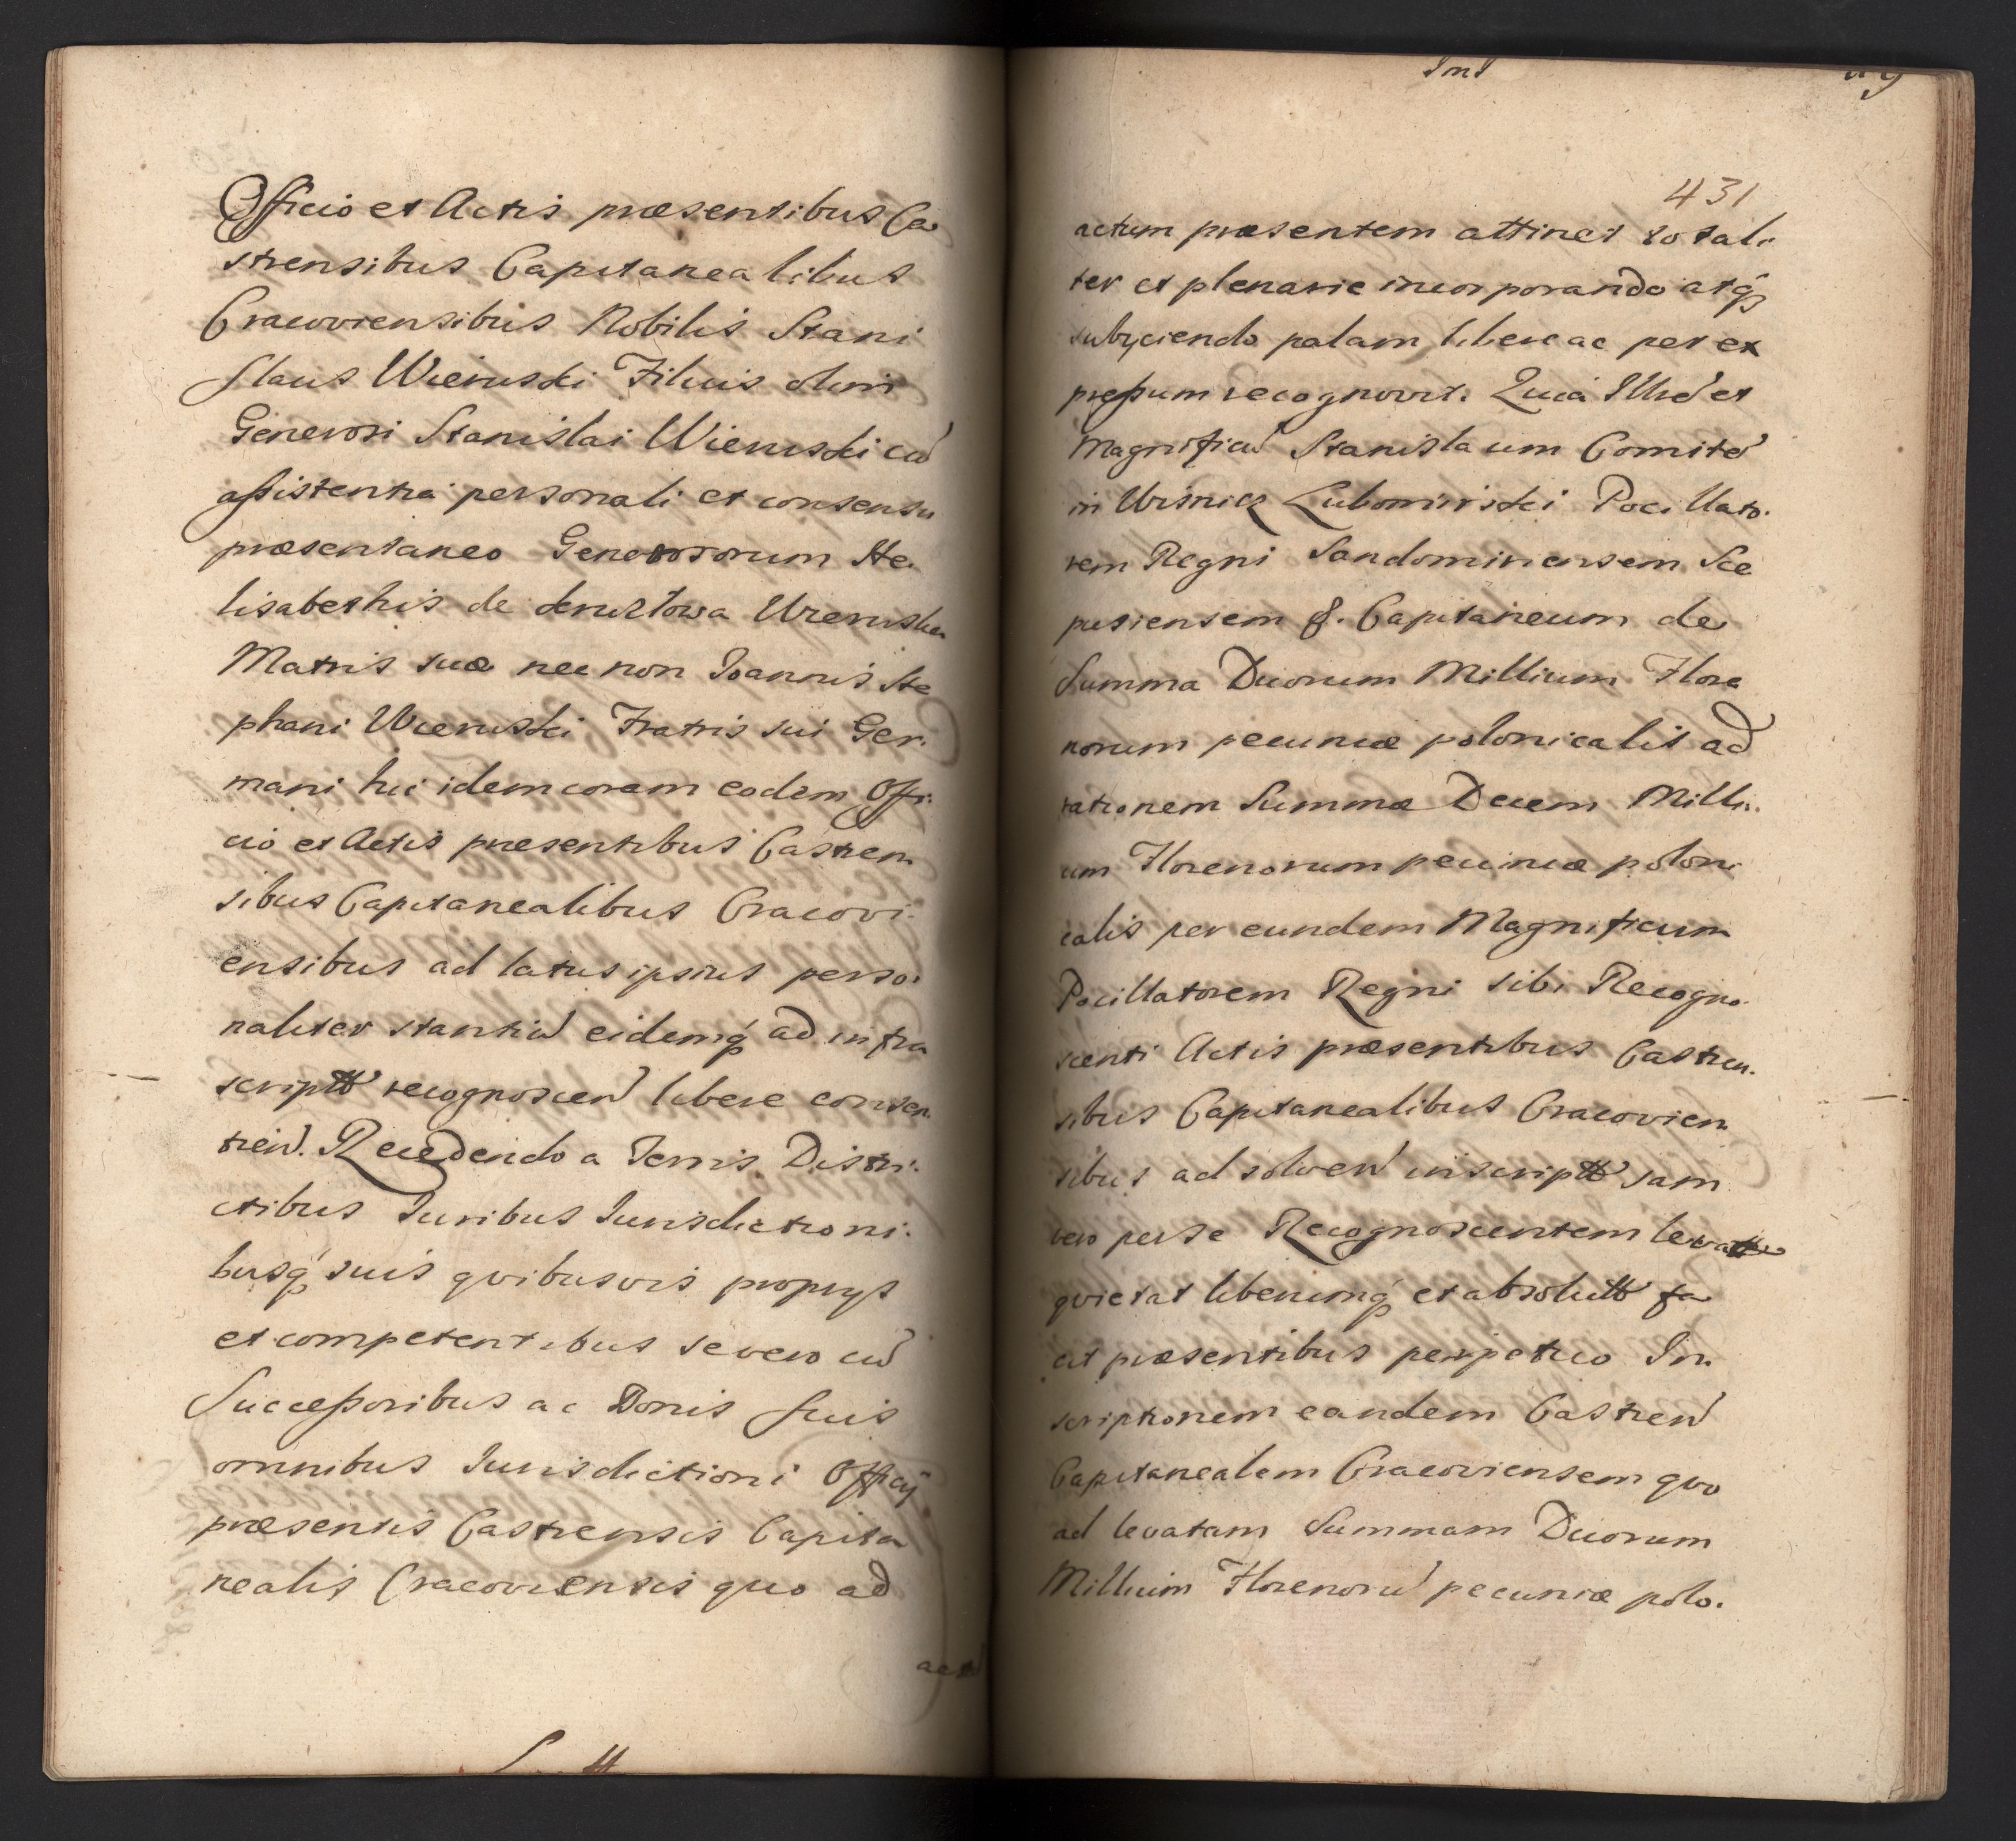 Officio et Actis præsentibus Ca
strensibus Capitanealibus
Cracoviensibus Nobilis Stani
slaus Wieruski Filius olim
Generosi Stanislai Wieruski cu͂
assistentia personali et consensu
præsentaneo Generosorum He.
lisabethis de Wieruska
Matris suæ nec non Joannis Ste
phani Wieruski Fratris sui Ger.
mani hic idem coram eodem Offi.
cio et Actis præsentibus Castren
sibus Capitanealibus Cracovi
ensibus ad latus ipsius perso.
naliter stantiu͂ eidemq́ ad infra
scriptt recognoscen͂ libere consen.
tien͂. Recedendo a Terris Distri.
ctibus Juribus Jurisdictioni.
busq́ suis qvibusvis proprys
et competentibus se vero cu͂
Successoribus ac Bonis suis
omnibus Jurisdictioni Officij
præsentis Castrensis Capita
nealis Cracoviensis quo ad
431
actum præsentem attinet total.
ter et plenarie incorporando atq́
subyciendo palam libere ac per ex
pressum recognovit. Quia Illre͂ et
Magnificu͂ Stanislaum Comite͂
in Wisnicz Lubomirski Pocillato.
rem Regni Sandomiriensem Sce
pusiensem &. Capitaneum de
Summa Duorum Millium Flore
norum pecuniæ polonicalis ad
rationem Summæ Decem Milli.
um Florenorum pecuniæ poloni
calis per eundem Magnificum
Pocillatorem Regni sibi Recogno.
scenti Actis præsentibus Castren.
sibus Capitanealibus Cracovien
sibus ad solven͂ inscriptt jam
vero per se Recognoscentem
qvietat liberumq́ et absolutt fa
cit præsentibus perpetuo In.
scriptionem eandem Castren͂
Capitanealem Cracoviensem qvo
ad levatam Summam Duorum
Millium Florenoru͂ pecuniæ polo.